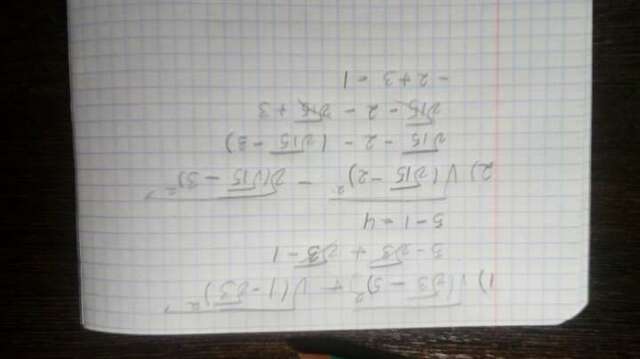 1) √(√3 - 5)² + √(1 - √3)²
5 - √3 + √3 - 1
5 - 1 = 4
2) √(√15 - 2)² - √(√15 - 3)²
√15 - 2 - (√15 - 3)
√15 - 2 - √15 + 3
- 2 + 3 = 1